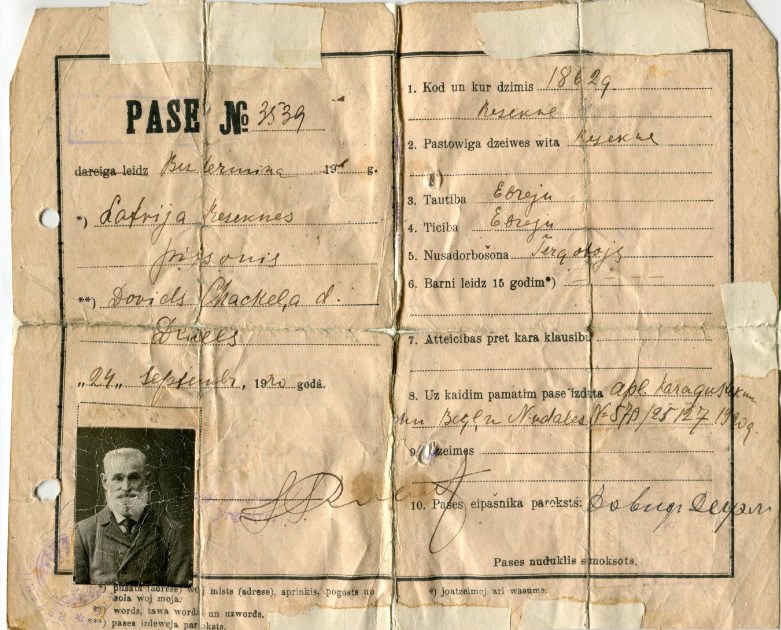 PASE № 3539
dareiga leidz Beztermina 19 g.
*) Latvija Rezeknes
pilsonis
**) Dovids Chackeļa d.
"24" septembr, 1920 godâ.
*) pilsata (adrese) mists (adrese), aprinkis, pogosts un
sola woj moja.
**) words, tawa words un uzwords.
***) pases izdeweja paroksts.
1. Kod un kur dzimis 1862g
Rezekne
2. Pastowiga dzeiwes wita Rezekne
3. Tautiba Ebreju
4. Ticiba Ebreju
5. Nusadorbošona Tergotojs
6. Barni leidz 15 godim*)
7. Atteicibas pret kara klausibu
8. Uz kaidim pamatim pase izduta apl.
1920g.
9. Zeimes
10. Pases eipašnika paroksts: Довид
Pases nuduklis smoksots.
*) joatzeimoj ari wasums.